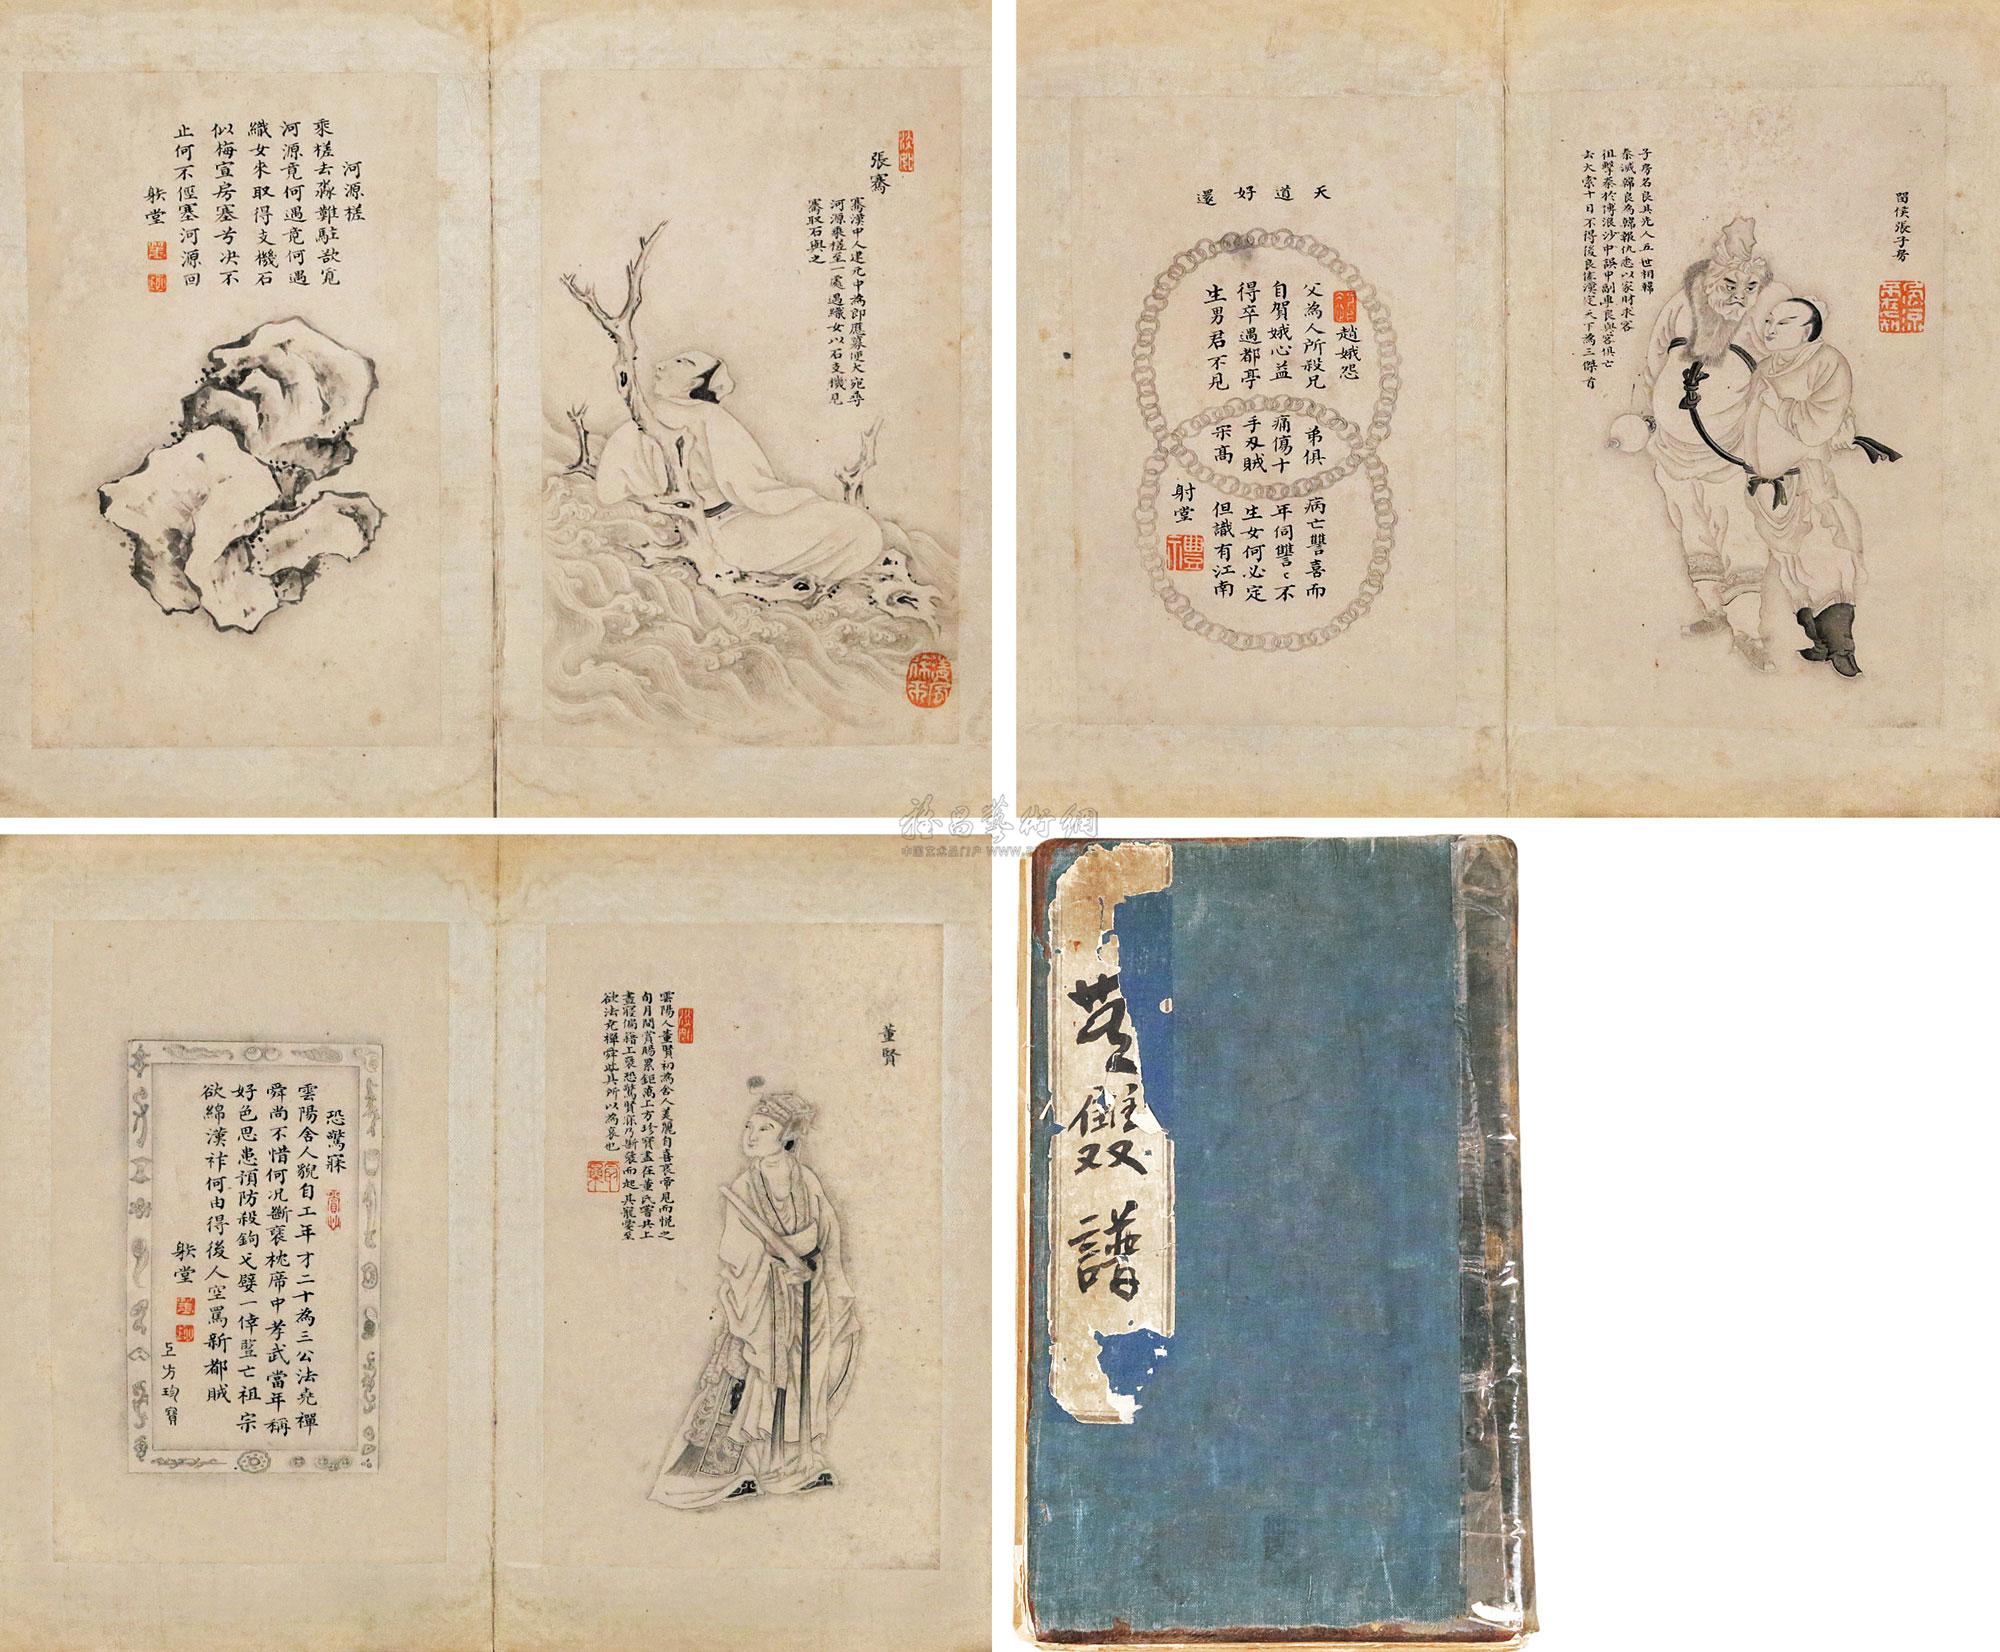 河源槎
乘槎去淼難駐欲覓
河源竟何遇竟何遇
織女來取得支機石
似悔宣房塞兮決不
止何不徑塞河源回
躲堂
張騫
騫漢中人建元中為郎應募使大宛尋
河源乘槎至一處遇織女以石支機見
騫取石與之
天道好還
趙娥怨
父為人所殺兄弟俱病亡讐喜而
自賀娥心益痛傷十年伺讐〻不
得卒遇都亭手刃賊生女何必定
生男君不見宋高但識有江南
射堂
留侯張子房
子房名良其先人五世相韓
秦滅韓良為韓報仇悉以家財求客
狙擊秦於博浪沙中誤中副車良與客俱亡
去大索十日不得後良佐漢定天下為三傑首
恐驚寐
雲陽舍人貌自工年才二十為三公法堯禪
舜尚不惜何況斷褏枕席中孝武當年稱
好色思患預防殺鉤弋嬖一倖豎亡祖宗
欲綿漢祚何由得後人空罵新都賊
躲堂
上方珍寶
董賢
雲陽人董賢初為舍人美麗自喜哀帝見而悅之
旬月間賞賜累鉅萬上方珍寶盡在董氏嘗共上
晝寢偏藉上褏恐驚賢寐乃斷褏而起其寵愛至
欲法堯禪舜此其所以為哀也
雙譜
中国艺术品门户